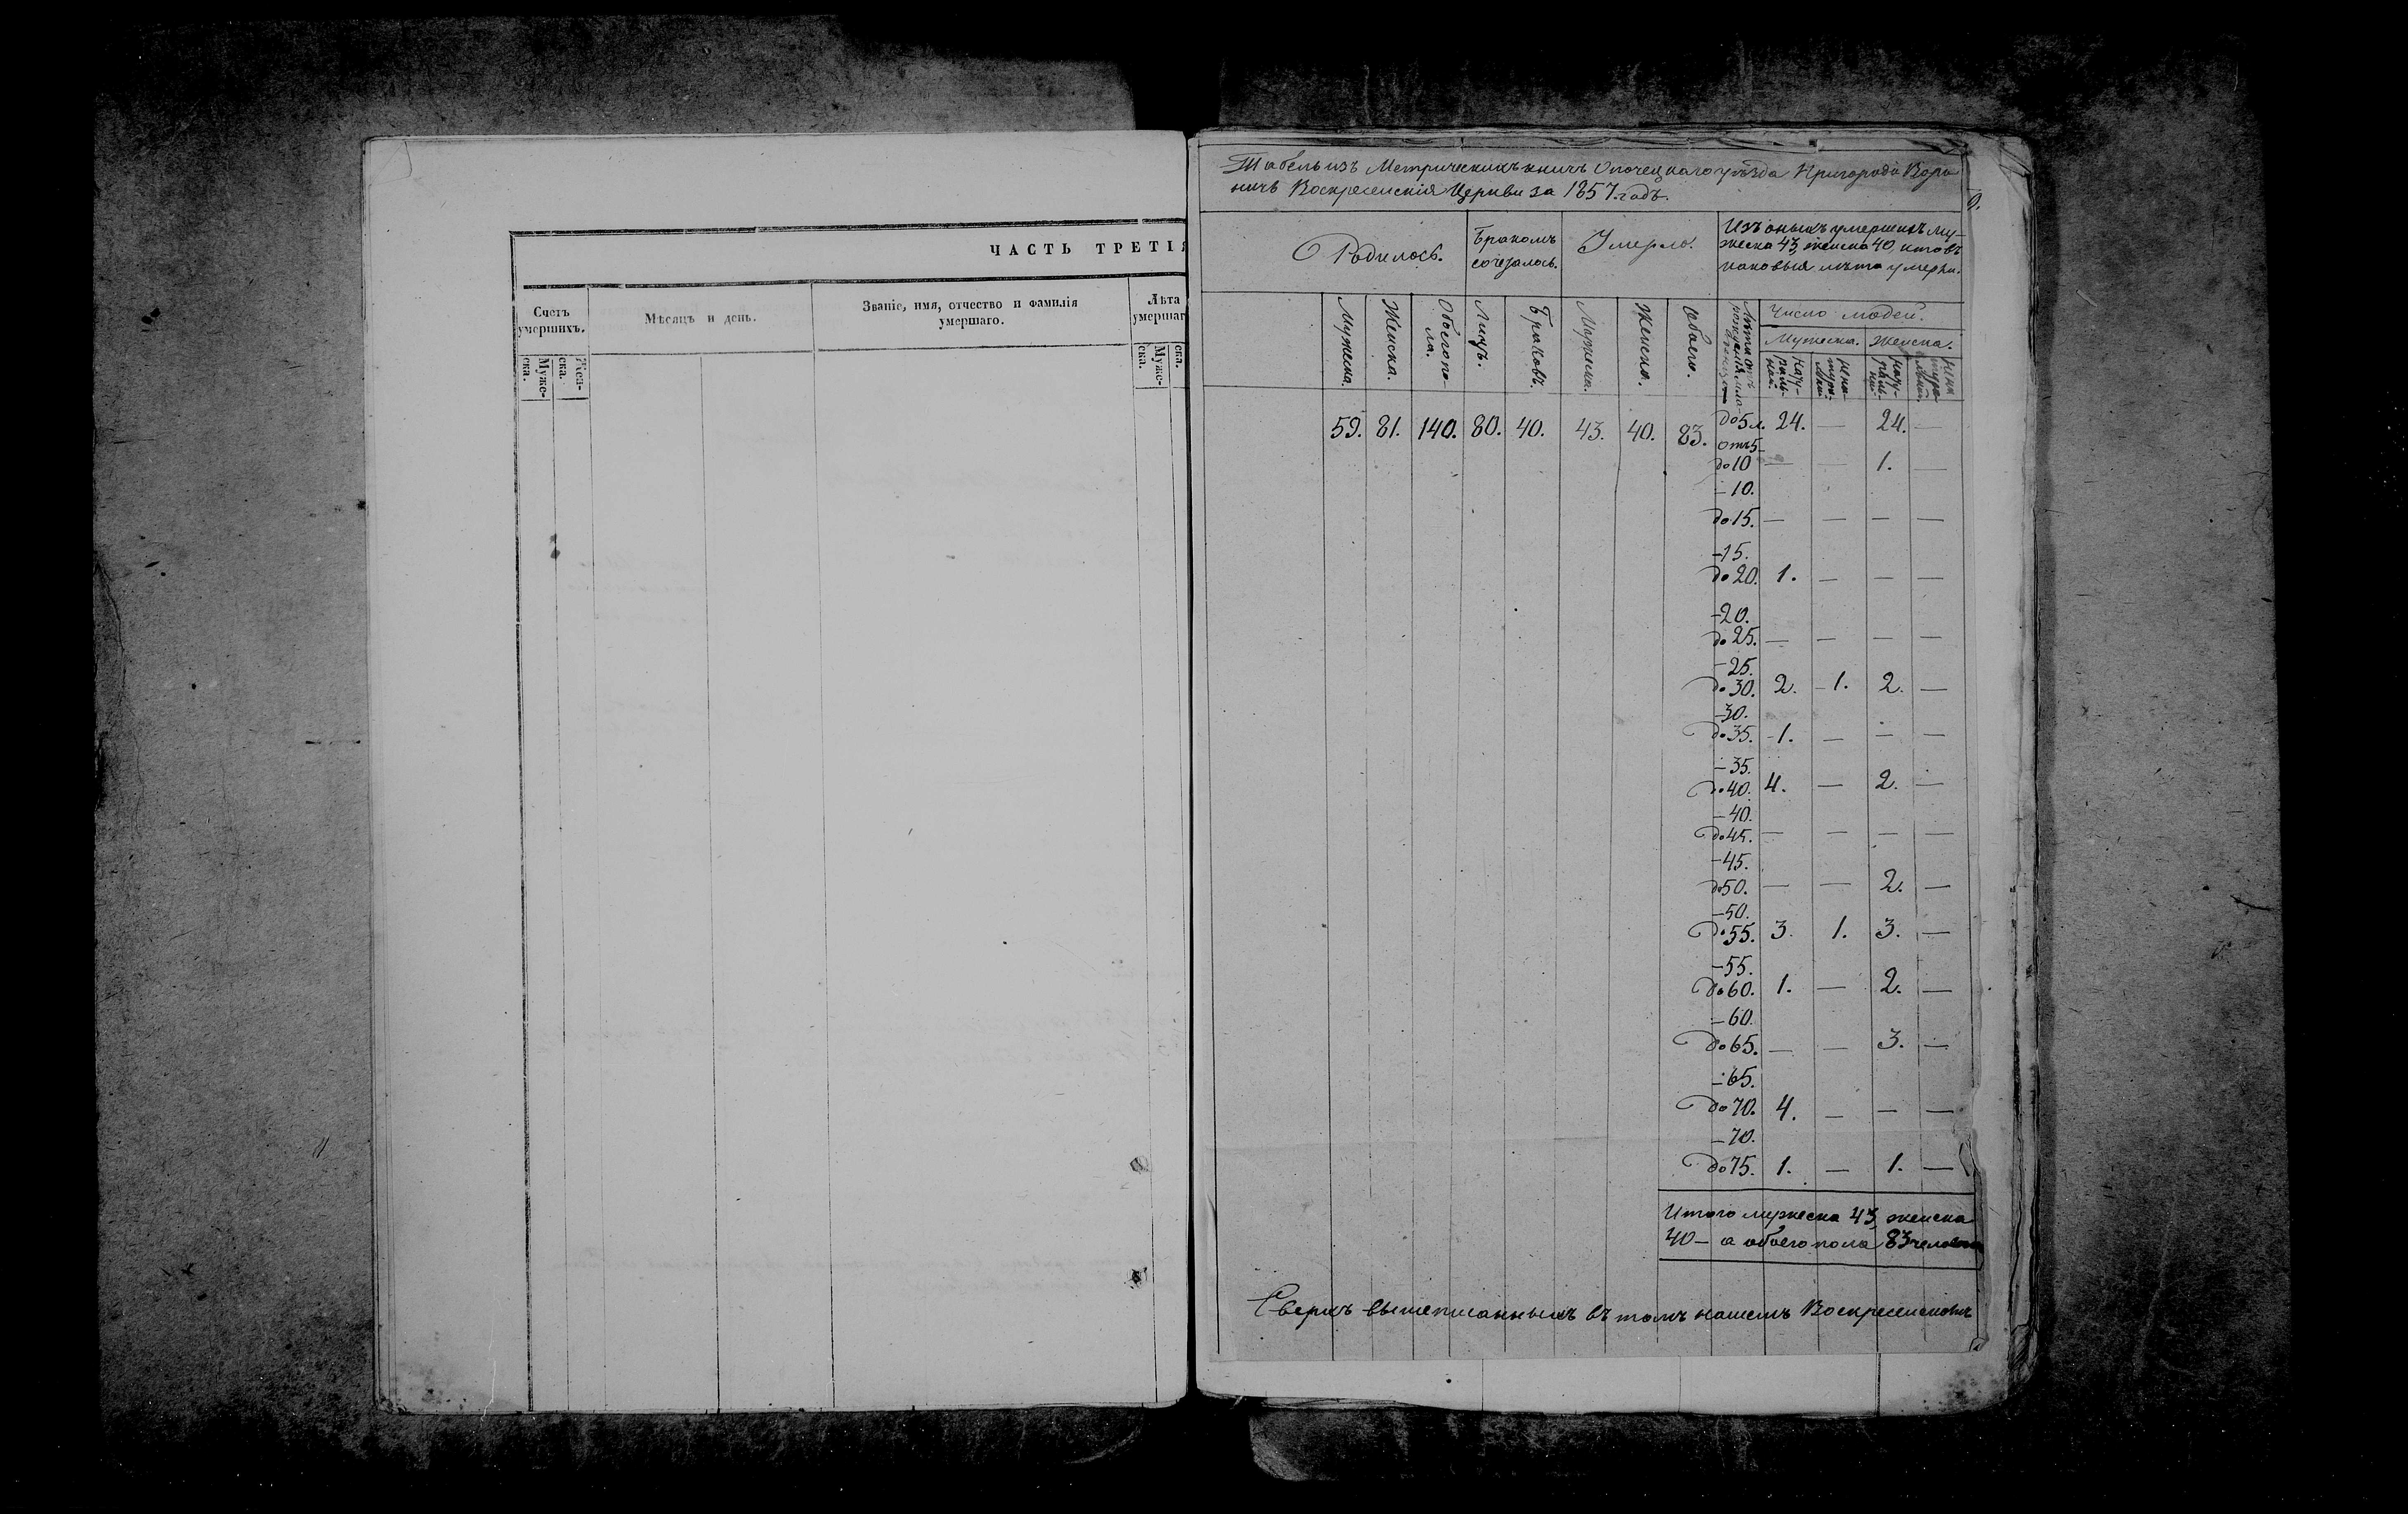 ЧАСТЬ ТРЕТІЯ
Счетъ умершихъ.
Мѣсяцъ и день.
Званіе, имя, отчество и фамилія умершаго.
Лѣта умершаг
Муже-
ска.
Жен-
ска.
Муже-
ска.
ска.
Табель изъ Метрическихъ книгъ Опочецкаго уѣзда Пригорода Воро
ничь Воскресенскія Церкви за 1857. годъ.
Родилось.
Бракомъ
сочеталось.
Умерло.
Изъ оныхъ умершихъ му-
жеска 43, женска 40 кто въ
каковыя лѣта умерли.
Мужеска.
Женска.
Обоего по-
ла.
Лицъ.
Браковъ.
Мужеска.
Женска.
Обоего.
Лѣта отъ
Число людей.
Мужеска.
Женска.
59. 81. 140. 80. 40. 43. 40. 83. до 5 л. 24. — 24. —
отъ 5
до 10 — — 1. —
— 10.
до 15. — — — —
— 15.
до 20. 1. — — —
— 20.
до 25. — — — —
— 25.
до 30. 2. 1. 2. —
— 30.
до 35. 1. — — —
— 35.
до 40. 4. — 2. —
— 40.
до 45. — — — —
— 45.
до 50. — — 2. —
— 50.
до 55. 3. 1. 3. —
— 55.
до 60. 1. — 2. —
— 60.
до 65. — — 3. —
— 65.
до 70. 4. — — —
— 70.
до 75. 1. — 1. —
Итого мужеска 43, женска
40 — а обоего пола 83 человека
Сверхъ вышеписанныхъ въ томъ нашемъ Воскресенскомъ